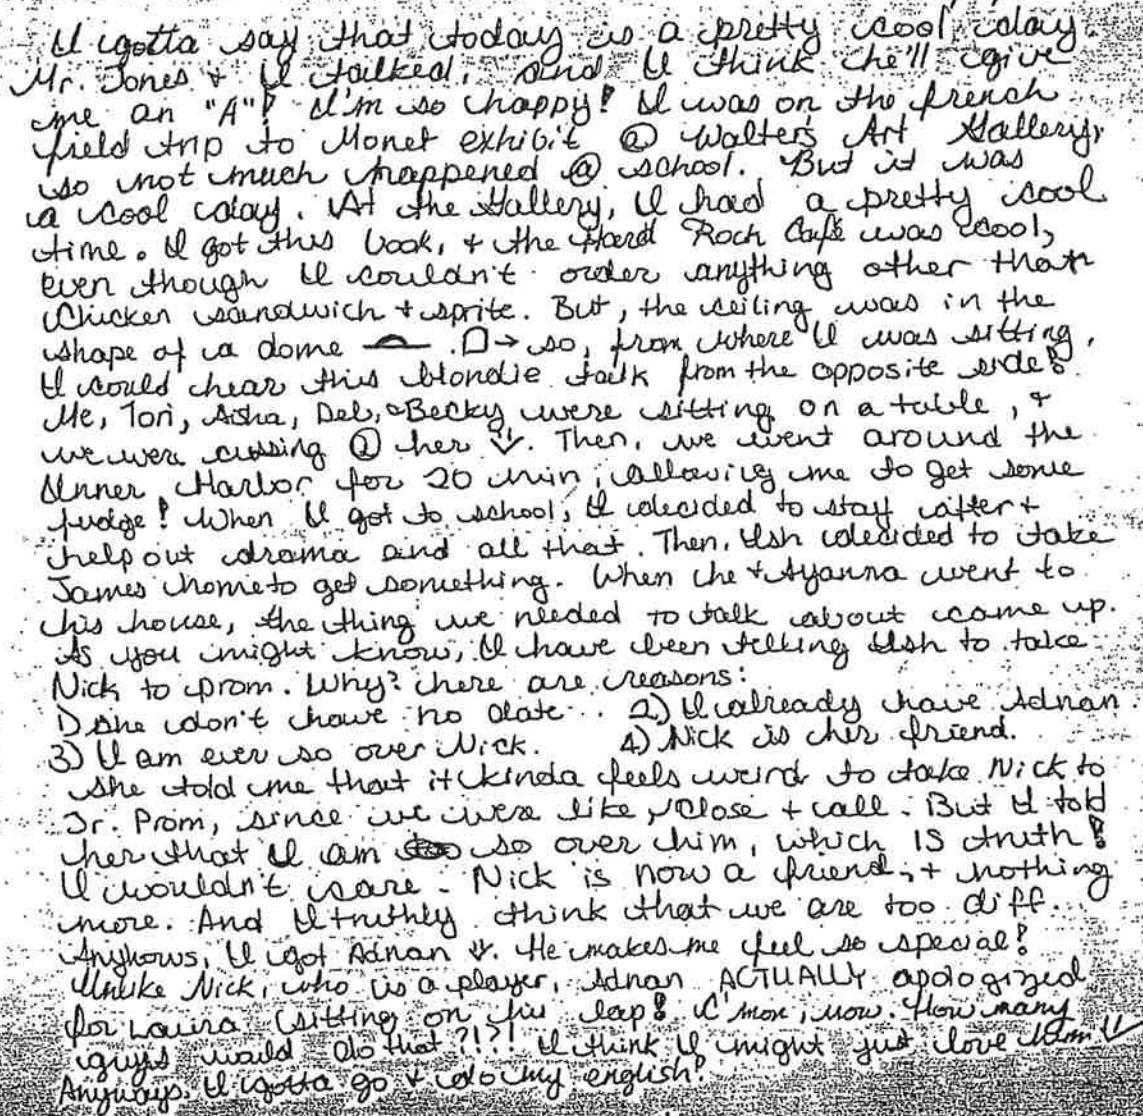 I gotta say that today is a pretty cool day.
Mr. Jones + I talked, and I think he'll give
me an "A"! I'm so happy! I was on the french
field trip to Monet exhibit @ Walters Art Gallery,
so not much happened @ school. But it was
a cool day. At the Gallery, I had a pretty cool
time. I got this book, + the Hard Rock Café was cool,
even though I couldn't order anything other than
Chicken sandwich + sprite. But, the ceiling was in the
shape of a dome → so, from where I was sitting,
I could hear this blondie talk from the opposite side!
Me, Tori, Aisha, Deb, & Becky were sitting on a table, +
we were cussing @ her. Then, we went around the
Inner Harbor for 20 min, allowing me to get some
fudge! When I got to school, I decided to stay after +
help out drama and all that. Then, Ish decided to take
James home to get something. When he + Ayanna went to
his house, the thing we needed to talk about came up.
As you might know, I have been telling Ish to take
Nick to prom. Why? here are reasons:
1) she don't have no date.. 2) I already have Adnan.
3) I am ever so over Nick. 4) Nick is her friend.
She told me that it kinda feels weird to take Nick to
Jr. Prom, since we were like, close + all. But I told
her that I am so over him, which IS truth!
I wouldn't care. Nick is now a friend, + nothing
more. And I truthly think that we are too diff.
Anyhows, I got Adnan. He makes me feel so special!
Unlike Nick, who is a player, Adnan ACTUALLY apologized
for Laura sitting on his lap! C'mon, now. How many
guys would do that?!?! I think I might just love him.
Anyways. I gotta go + do my english!